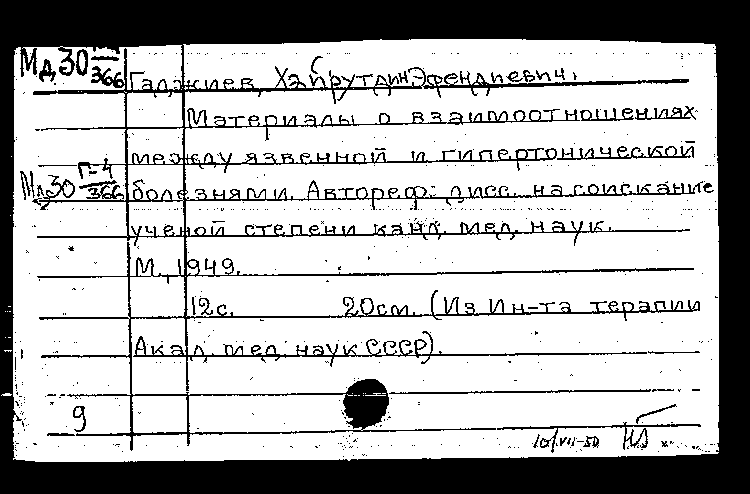 Мд30 Г-4/366
Гаджиев, Хайрутдин Эфендиевич.
Материалы о взаимоотношениях
между язвенной и гипертонической
Мд30 Г-4/366
болезнями. Автореф. дисс. на соискание
ученой степени канд. мед. наук.
М., 1949.
12с. 20см. (Из Ин-та терапии
Акад. мед. наук СССР).
9
10/VII-50